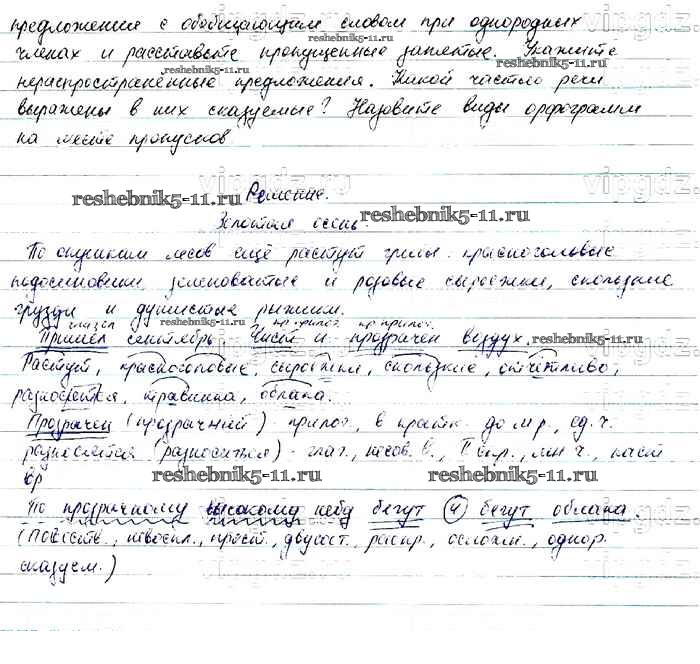 предложение с обобщающим словом при однородных
членах и расставьте пропущенные запятые. Укажите
нераспространённые предложения. Какой частью речи
выражены в них сказуемые? Назовите виды орфограмм
на месте пропусков
Решение.
Золотая осень.
По опушкам лесов ещё растут грибы: красноголовые
подосиновики, зеленоватые и розовые сыроежки, скользкие
грузди и душистые рыжики.
глагол кр. прилаг. кр прилаг.
Пришёл сентябрь. Чист и прозрачен воздух.
Растут, красноголовые, сыроежки, скользкие, отчётливо,
разносятся, травинка, облака.
Прозрачен (прозрачный) - прилаг., в кратк. ф., м.р., ед. ч.
разносятся (разноситься) - глаг., несов. в., II спр., мн ч., наст
вр
По прозрачному высокому небу бегут (и) бегут облака.
(Повеств., невоскл., прост., двусост., распр., осложн., однор.
сказуем.)
reshebnik5-11.ru
reshebnik5-11.ru
reshebnik5-11.ru
reshebnik5-11.ru
reshebnik5-11.ru
reshebnik5-11.ru
reshebnik5-11.ru
reshebnik5-11.ru
reshebnik5-11.ru